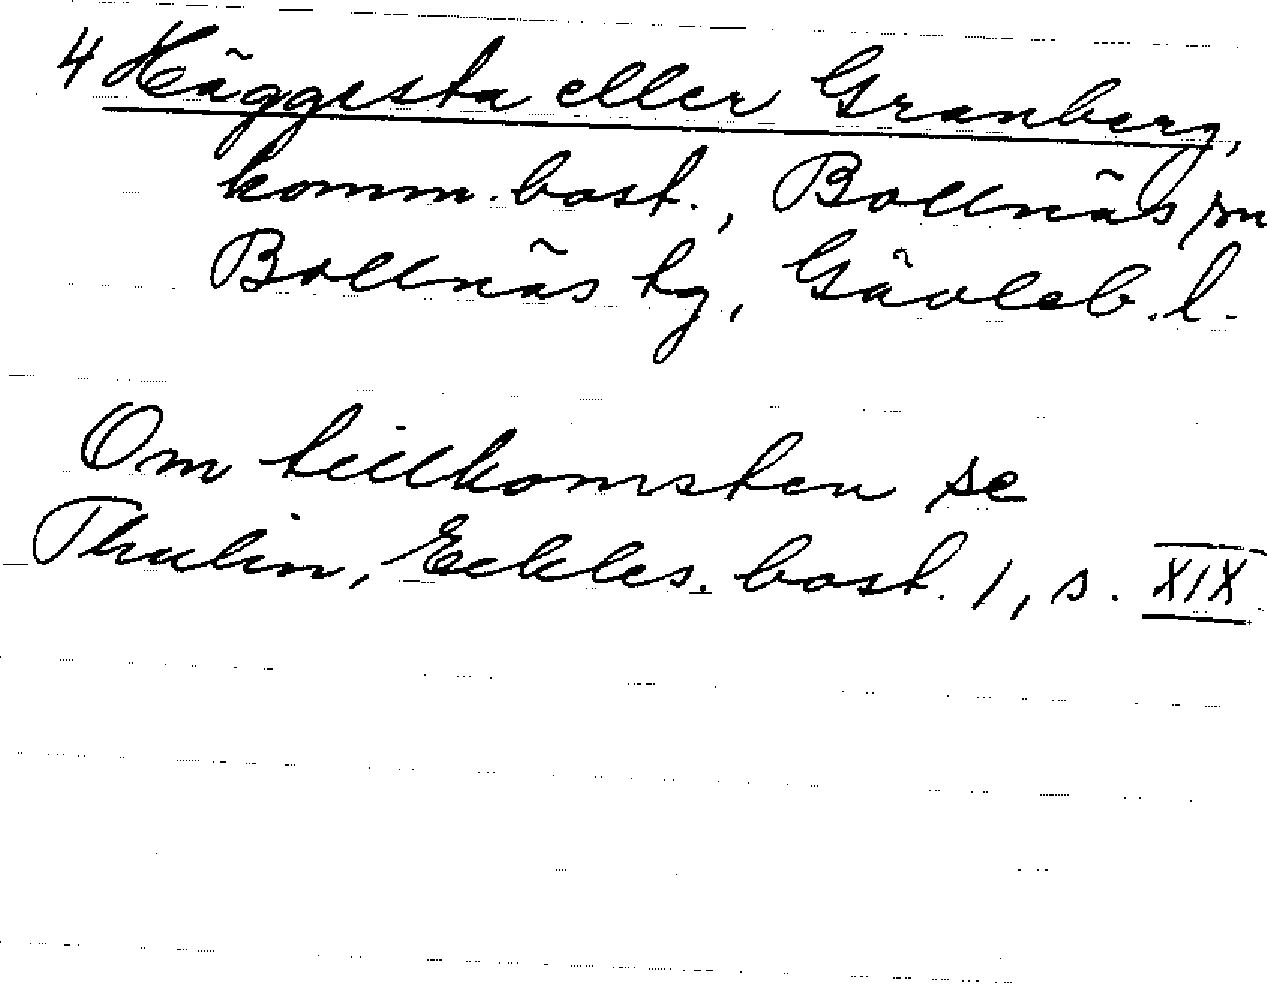 4 Häggesta eller Granberg,
komm. bost., Bollnäs sn
Bollnäs tg, Gävleb. l.
Om tillkomsten se
Thulin, Eckles. bost. 1, s. XIX